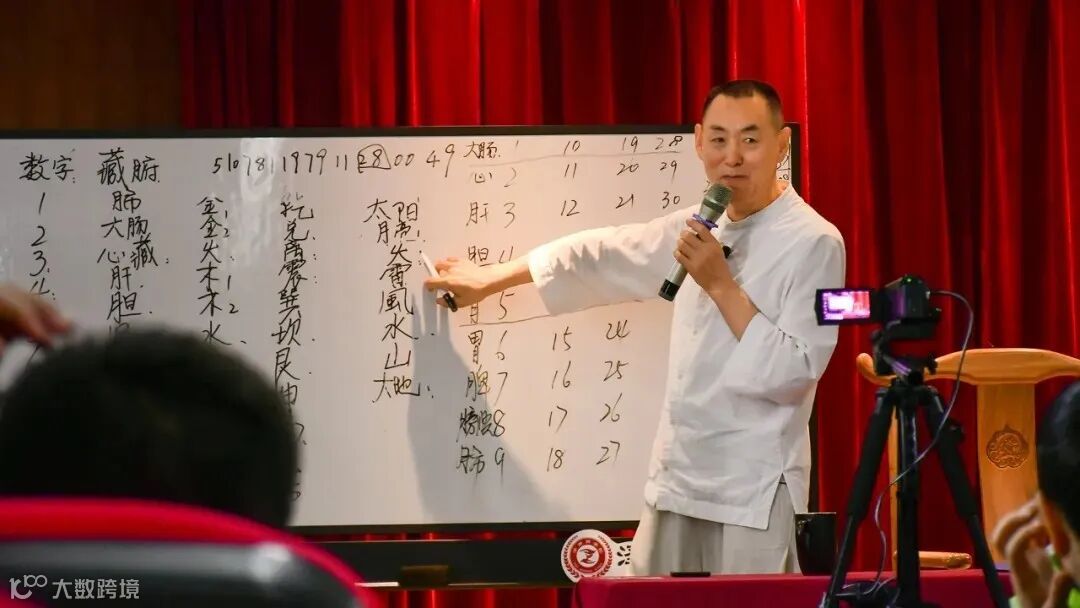 数字: 藏腑 5107811979112800 49 大肠 1 10 19 28
心 2 11 20 29
1 肺 金1 乾 太阳 肝 3 12 21 30
2 大肠 金2 兑:
3 心藏. 火: 离: 火: 胆 4
4 肝. 木1 震: 雷
胆 木2 巽 風 5
水. 坎. 水 胃 6 15 24
艮 山 7 16 25
坤 大地: 膀胱 8 17 26
肺 9 18 27
大数跨境